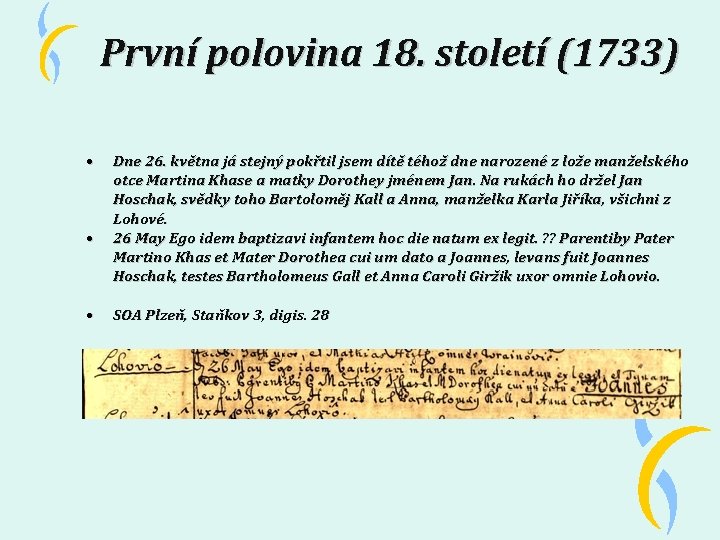 První polovina 18. století (1733)
• Dne 26. května já stejný pokřtil jsem dítě téhož dne narozené z lože manželského
otce Martina Khase a matky Dorothey jménem Jan. Na rukách ho držel Jan
Hoschak, svědky toho Bartoloměj Kall a Anna, manželka Karla Jiříka, všichni z
Lohové.
• 26 May Ego idem baptizavi infantem hoc die natum ex legit. ?? Parentiby Pater
Martino Khas et Mater Dorothea cui um dato a Joannes, levans fuit Joannes
Hoschak, testes Bartholomeus Gall et Anna Caroli Giržik uxor omnie Lohovio.
• SOA Plzeň, Staňkov 3, digis. 28
uxor et Mathias omnes
Lohoviô 26 May Ego idem baptizavi infantem hoc die natum ex legit. et
Parentib9 Martino Khas et Dorothea cui Joannes
fuit Joannes Hoschak Bartholomæy Kall, et Anna Caroli Giržik
uxor omnes Lohoviô.